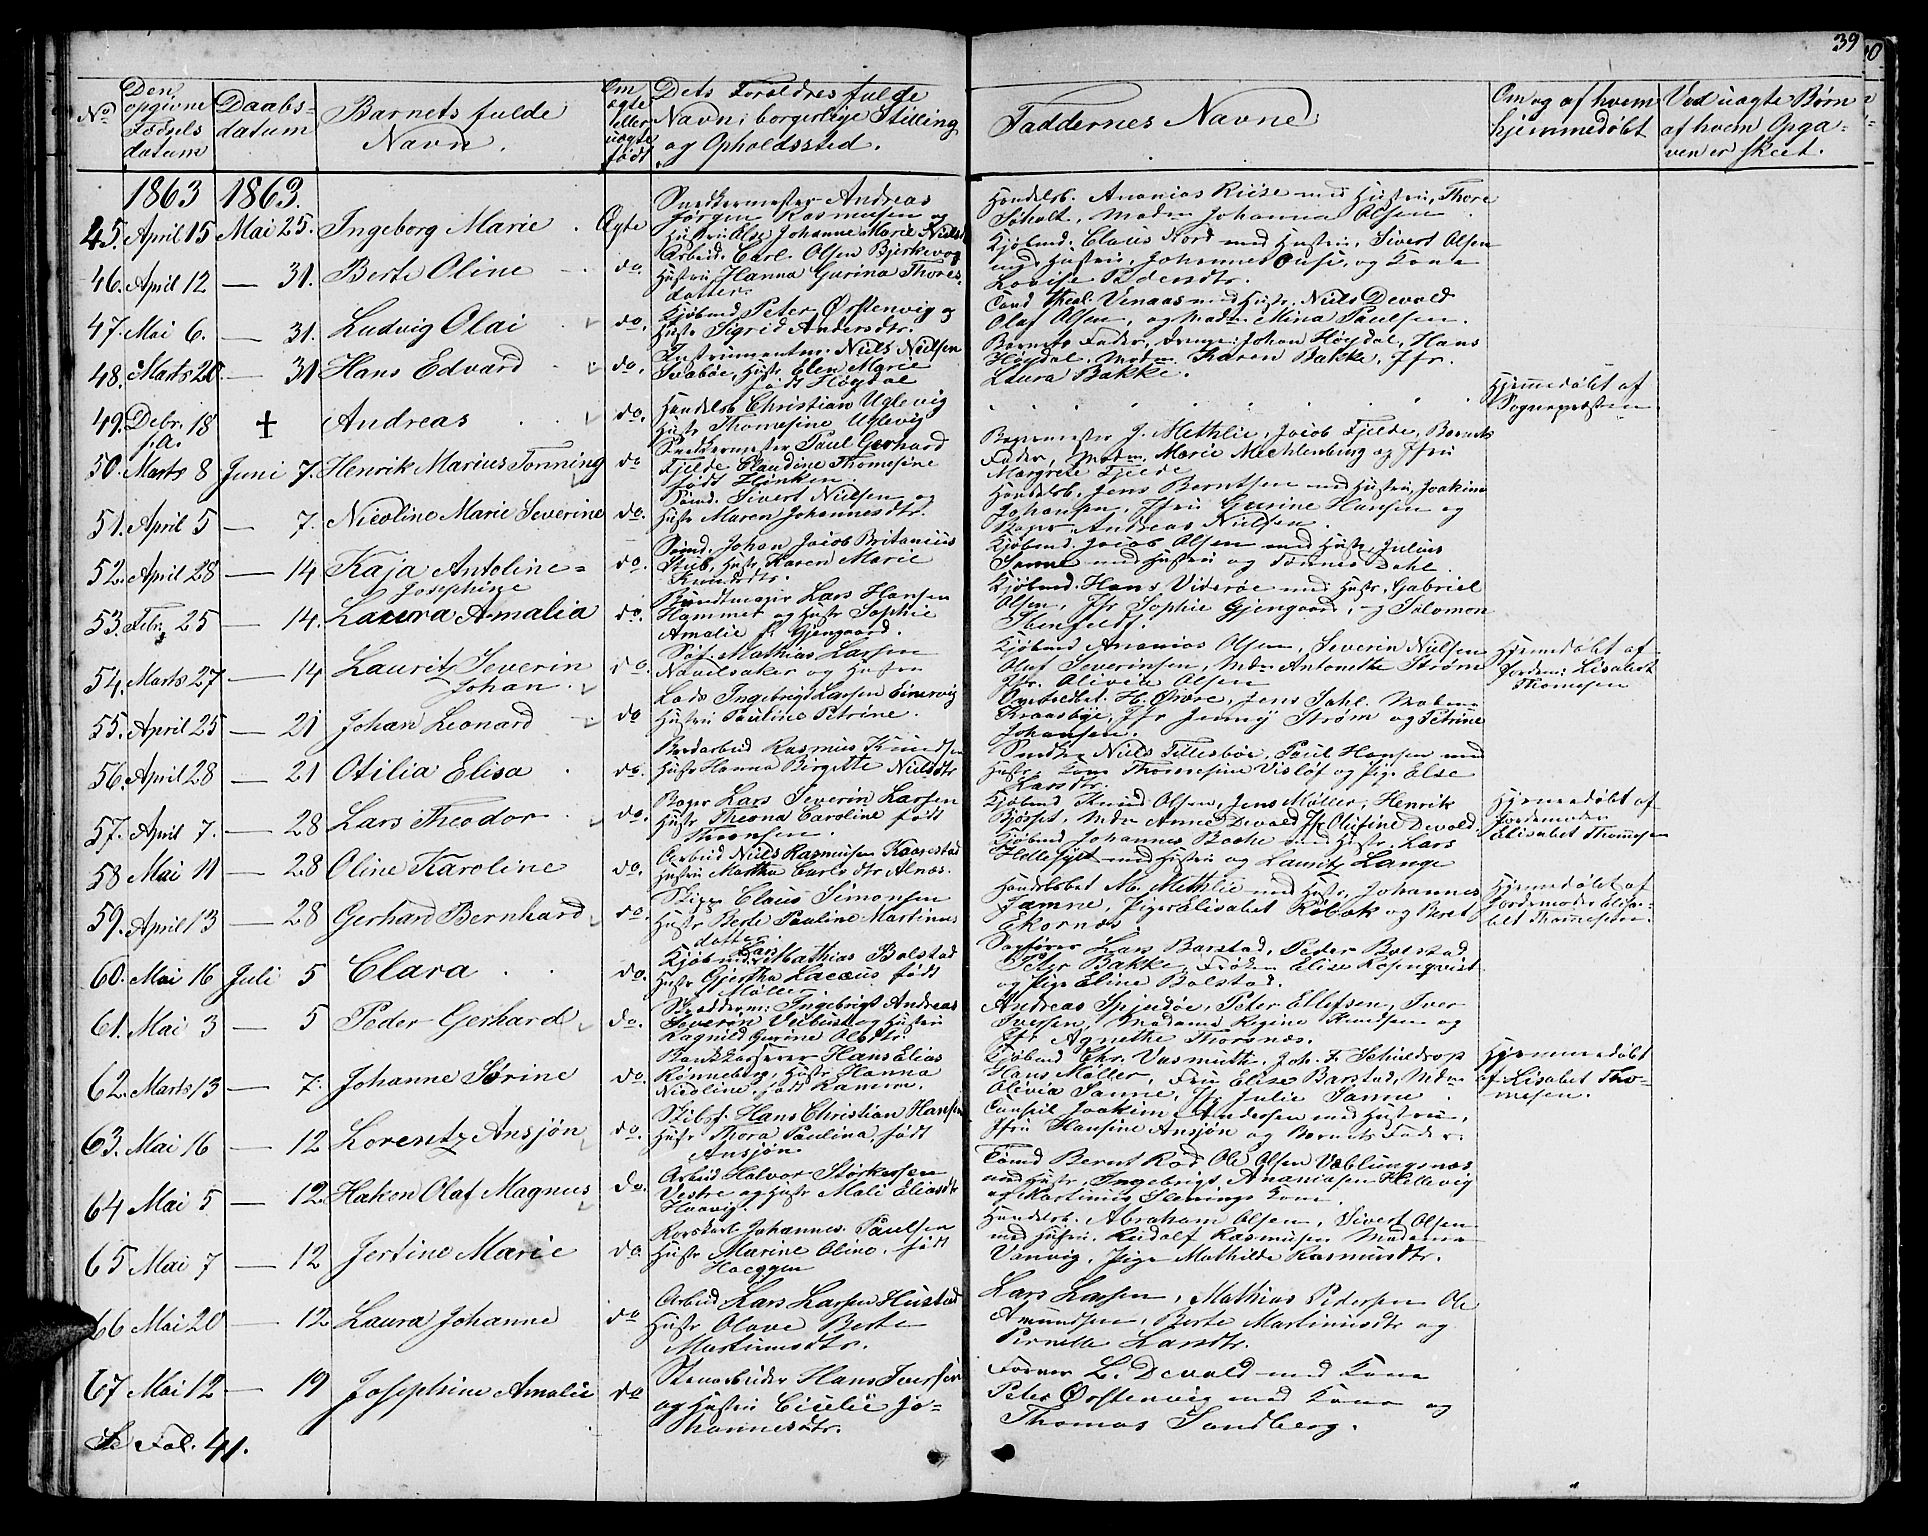 39
No
Den opgivne Fødsels datum
Daabs-datum
Barnets fulde Navn.
Om ægte eller uægte født
Dets Forældres fulde Navn, borgerlige Stilling og Opholdssted.
Faddernes Navne
Om og af hvem hjemmedøbt
Ved uægte Børn af hvem Opga-ven er skeet.
1863 1863.
45. April 15 Mai 25. Ingeborg Marie Ægte
Snedkermester Andreas
Jørgen Rasmusen og
Hustru Else Johanne Marie Nielsd
Handelsb. Ananias Riise med Hustru, Thore
Søholt, Madm Johanna Olsen
46. April 12 — 31. Berte Oline do.
Arbeid. Carl Olsen Bjerkevog
Hustru Hanna Gurina Thores-
datter.
Kjøbmd. Claus Nord med Hustru, Sivert Olsen
med Hustru, Johannes Ousi, og Kone
Lovise Pedersdtr.
47. Mai 6. — 31. Ludvig Olai do.
Kjøbmd Peter Ørstenvig og
Hustr Sigrid Andersdtr.
Cand theol. Venaas med Hustr, Niels Devold
Olaf Olsen, og Madm Mina Paulsen.
48. Marts 20 — 31 Hans Edvard do.
Instrumentm. Niels Nielsen
Svabøe, Hustr Elen Marie
født Høgdal
Barnets Fader, Drenge Johan Høgdal, Hans
Høgdal, Madm Karen Bakke, Jfr.
Laura Bakke.
49. Debr. 18 p.a. + Andreas do.
Handelsb Christian Uglevig
Hustr Thomesine Uglevig
Hjemmedøbt af
Sognepresten
50. Marts 8 Juni 7. Henrik Marius Tonning do
Snedkermester Paul Gerhard
Fjelde, Claudine Thomesine
født Hønken.
Bagermester J. Methlie, Jacob Fjelde, Barnets
Fader, Madm. Marie Mechlenburg og Jfru
Margrete Fjelde
51. April 5 — 7. Nicoline Marie Severine do.
Sømd. Sivert Nielsen og
Hustr Maren Johannesdtr.
Handelsb. Jens Berntsen med Hustru, Joakim
Johansen, Jfru Gurine Hansen og
Bager Andreas Nielsen.
52. April 28 — 14 Kaja Antoline=
Josephine do.
Sømd. Johan Jacob Britanius
Stub, Hustr, Karen Marie
Knudsdtr.
Kjøbmd. Jacob Olsen med Hustr, Julius
Sanne med Hustru og Tønnes Dahl.
53. Febr. 25 — 14. Laura Amalia do.
Bundtmager Lars Hansen
Hammer og Hustr Sophie
Amalie f. Gjengaard.
Kjøbmd. Hans Viderøe med Hustr, Gabriel
Olsen, Jfr Sophie Gjengaard, og Salomon
54. Marts 27 — 14 Lauritz Severin
Johan do.
Søf. Mathias Larsen
Navelsaker og Hustru
Kjøbmd Ananias Olsen, Severin Nielsen
Olaf Severinsen, Mdm Antonette Strøm
Jfr. Olivia Olsen
Hjemmedøbt af
Jordem: Lisabet
Thomesen
55. April 25 — 21 Johan Leonard do
Lods Ingebrigt Larsen Einervig
Hustru Pauline Petrine.
H. Øvre, Jens Dahl, Madm
Kraasbye, Jfr Jenny Strøm og Petrine
Johansen.
56. April 28 — 21 Otilia Elisa do.
Rasmus Knudsen
Hustr Hanna Birgitte Nielsdtr
Snedker Niels Tillesbøe, Paul Hansen med
Hustr, Kone Thomesine Visløf og Pige Else
Larsdtr.
57. April 7. — 28 Lars Theodor do.
Bager Lars Severin Larsen
Hustr Theona Caroline født
Thronsen.
Kjøbmd Knud Olsen, Jens Møller, Henrik
Bjørset, Mdm Anne Devold Jfr Olufine Devold
Hjemmedøbt af
Jordemoder
Elisabet Thomesen
58 Mai 11 — 28 Oline Karoline do.
Arbeid Niels Rasmusen Kaarestad
Hustru Martha Carlsdtr Alnæs.
Kjøbmd Johannes Bakke med Hustr, Lars
Hellesylt med Hustru og Lauritz Lange
59. April 13 — 28 Gerhard Bernhard do.
Skipp Claus Simonsen
Hustr Berte Pauline Martinus
datter
Handelsbet M. Methlie med Hustr, Johannes
Jamne, Piger Elisabet Røbak og Beret
Ekornæs.
Hjemmedøbt af
Jordemoder Elisa-
bet Thomesen.
60. Mai 16 Juli 5 Clara do.
Kjøbmd. Lars Mathias Bolstad
Hustr Gjertha Lacaus født
Møller.
Sagfører Lars Barstad, Peder Bolstad
Peter Bakke, Frøken Elise Rosenqvist
og Pige Eline Bolstad.
61. Mai 3 — 5 Peder Gerhard do.
Skrædderm: Ingebrigt Andreas
Severin Viebust og Hustru
Ragnild Gurine Olsdtr.
Andreas Spjudøe, Peter Ellefsen, Iver
Iversen, Madame Regine Knudsen og
Jfr Agnethe Thorsnæs.
62. Marts 13 — 7. Johanne Sørine do.
Bankkasserer Hans Elias
Rønneberg, Hustr Hanna
Nicoline, født Ramm.
Kjøbmd Chr. Vasmuth, Joh. F. Schieldrop
Hans Møller, Fru Elise Barstad, Mdm
Olivia Sanne, Jfr Julie Sanne.
Hjemmedøbt
af Lisabet Tho-
mesen.
63. Mai 16 — 12 Lorentz Ansjøn do.
Skibsf. Hans Christian Hansen
Hustr Thora Paulina, født
Ansjøn
Consul Joakim Andersen med Hustru,
Jfru Hansine Ansjøn og Barnets Fader.
64 Mai 5 — 12 Haken Olaf Magnus do.
Arbeid Halvor Størkersen
Vestre og Hustr Mali Eliasdtr
Haavig.
Tømd Bernt Rød, Ole Olsen Væblungsnæs
med Hustr, Ingebrigt Ananiasen Hellevig
og Martinus Slevings Kone.
65 Mai 7 — 12 Jertine Marie do.
Johannes Paulsen
Hustr Marine Oline, født
Hoeggen
Handelsb. Abraham Olsen, Sivert Olsen
med Hustru, Rudolf Rasmusen Madame
Vanvig, Pige Mathilde Rasmusdtr.
66 Mai 20 — 12 Laura Johanne do
Arbeid Lars Larsen Hustad
Hustr Olave Berte
Martinusdtr.
Lars Larsen, Mathias Pedersen Ole
Amundsen, Berte Martinusdtr og
Pernella Larsdtr.
67 Mai 12 — 19 Josephine Amalie do
Stenarbeider Hans Iversen
og Hustru Cicilie Jo-
hannesdtr.
Farver L. Devold med Kone
Peter Ørstenvig med Kone og
Thomas Sandberg.
Se Fol. 41.